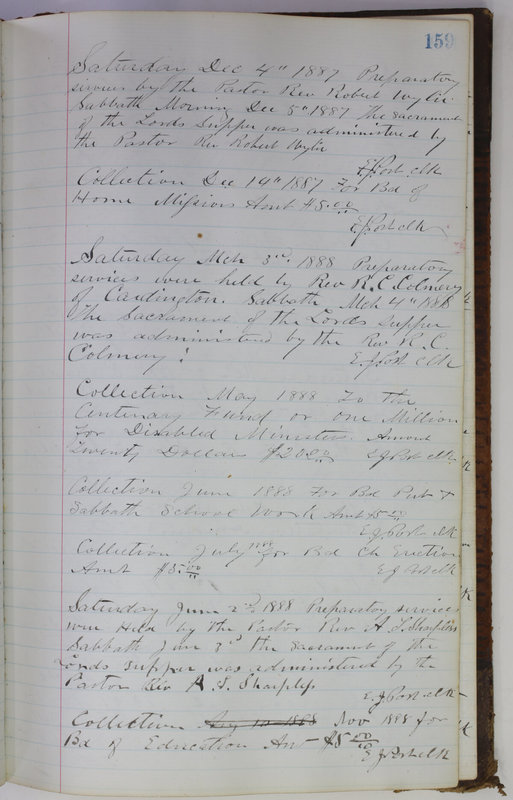 159
Saturday Dec 4" 1887 Preparatory
services by the Pastor Rev Robert Wylie.
Sabbath Morning Dec 5" 1887 The Sacrament
of the Lords Supper was administered by
the Pastor Rev Robert Wylie
E J Post clk
Collection Dec 19" 1887 For Bd of
Home Missions Amt $8.00
E J Post clk
Saturday Mch 3rd 1888 Preparatory
services were held by Rev R. C. Colmery
of Cardington. Sabbath Mch 4" 1888
The Sacrament of the Lords Supper
was administered by the Rev R. C.
Colmery. E. J. Post clk
Collection May 1888 To the
Centenary Fund or one Million
for Disabled Ministers. Amount
Twenty Dollars $20.00 E J Post clk
Collection June 1888 For Bd Pub &
Sabbath School Work Amt $5.00
E J Post clk
Collection July 1888 for Bd Ch Erection
Amt $5.00 E J Post clk
Saturday June 2nd 1888 Preparatory services
were Held by the Pastor Rev A. S. Sharpless
Sabbath June 3rd the Sacrament of the
Lords Supper was administered by the
Pastor Rev A. S. Sharpless
E. J. Post clk
Collection Nov 1888 for
Bd of Education Amt $5.00
E J Post clk